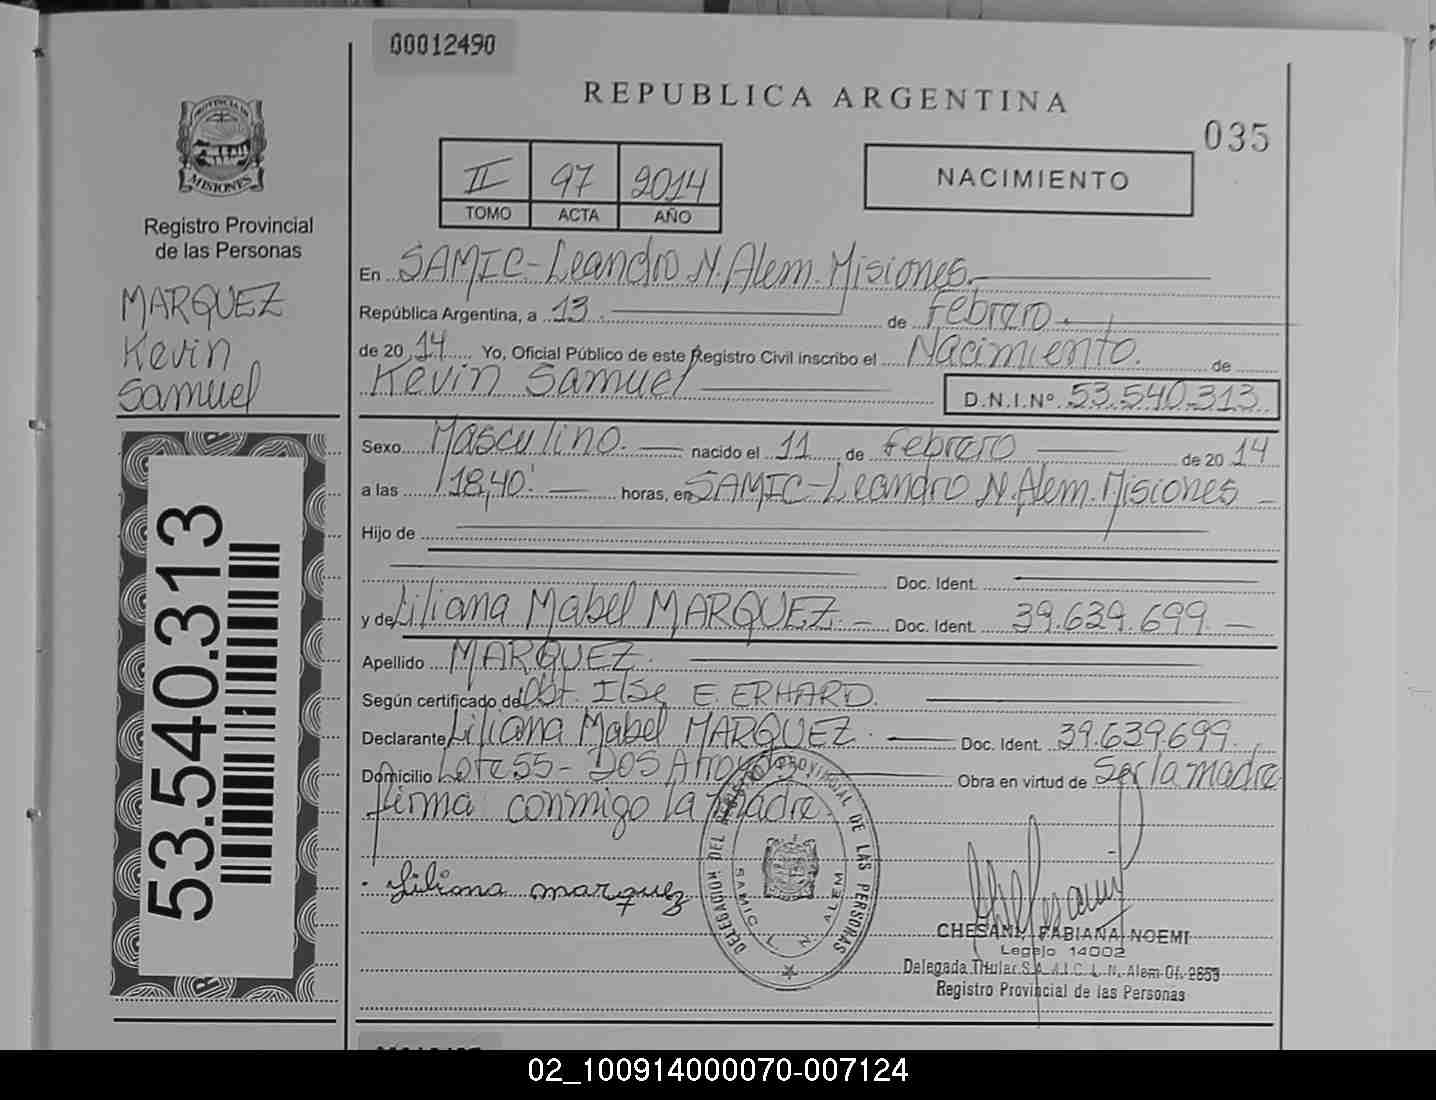 00012490
REPUBLICA ARGENTINA
035
PROVINCIA DE
MISIONES
Registro Provincial
de las Personas
MARQUEZ
Kevin
Samuel
53.540.313
II 97 2014
TOMO ACTA AÑO
NACIMIENTO
En SAMIC - Leandro N. Alem. Misiones.
República Argentina, a 13. de Febrero.
de 20 14 Yo, Oficial Público de este Registro Civil inscribo el Nacimiento. de
Kevin Samuel D.N.I.Nº. 53.540.313
Sexo Masculino. nacido el 11 de febrero de 20 14
a las 18,40' horas, en SAMIC - Leandro N. Alem. Misiones
Hijo de
Doc. Ident.
y de Liliana Mabel MARQUEZ. Doc. Ident. 39.639.699.
Apellido MARQUEZ.
Según certificado de Obt. Ilse E. ERHARD.
Declarante Liliana Mabel MARQUEZ. Doc. Ident. 39.639.699.
Domicilio Lote 55 - Dos Arroyos Obra en virtud de Ser la madre
firma conmigo la madre.
Liliana marquez
DELEGACION DEL REGISTRO PROVINCIAL DE LAS PERSONAS
SAMIC L. N. ALEM
CHESANI, FABIANA NOEMI
Legajo 14002
Delegada Titular S.A.M.I.C. L. N. Alem Of. 2653
Registro Provincial de las Personas
02_100914000070-007124